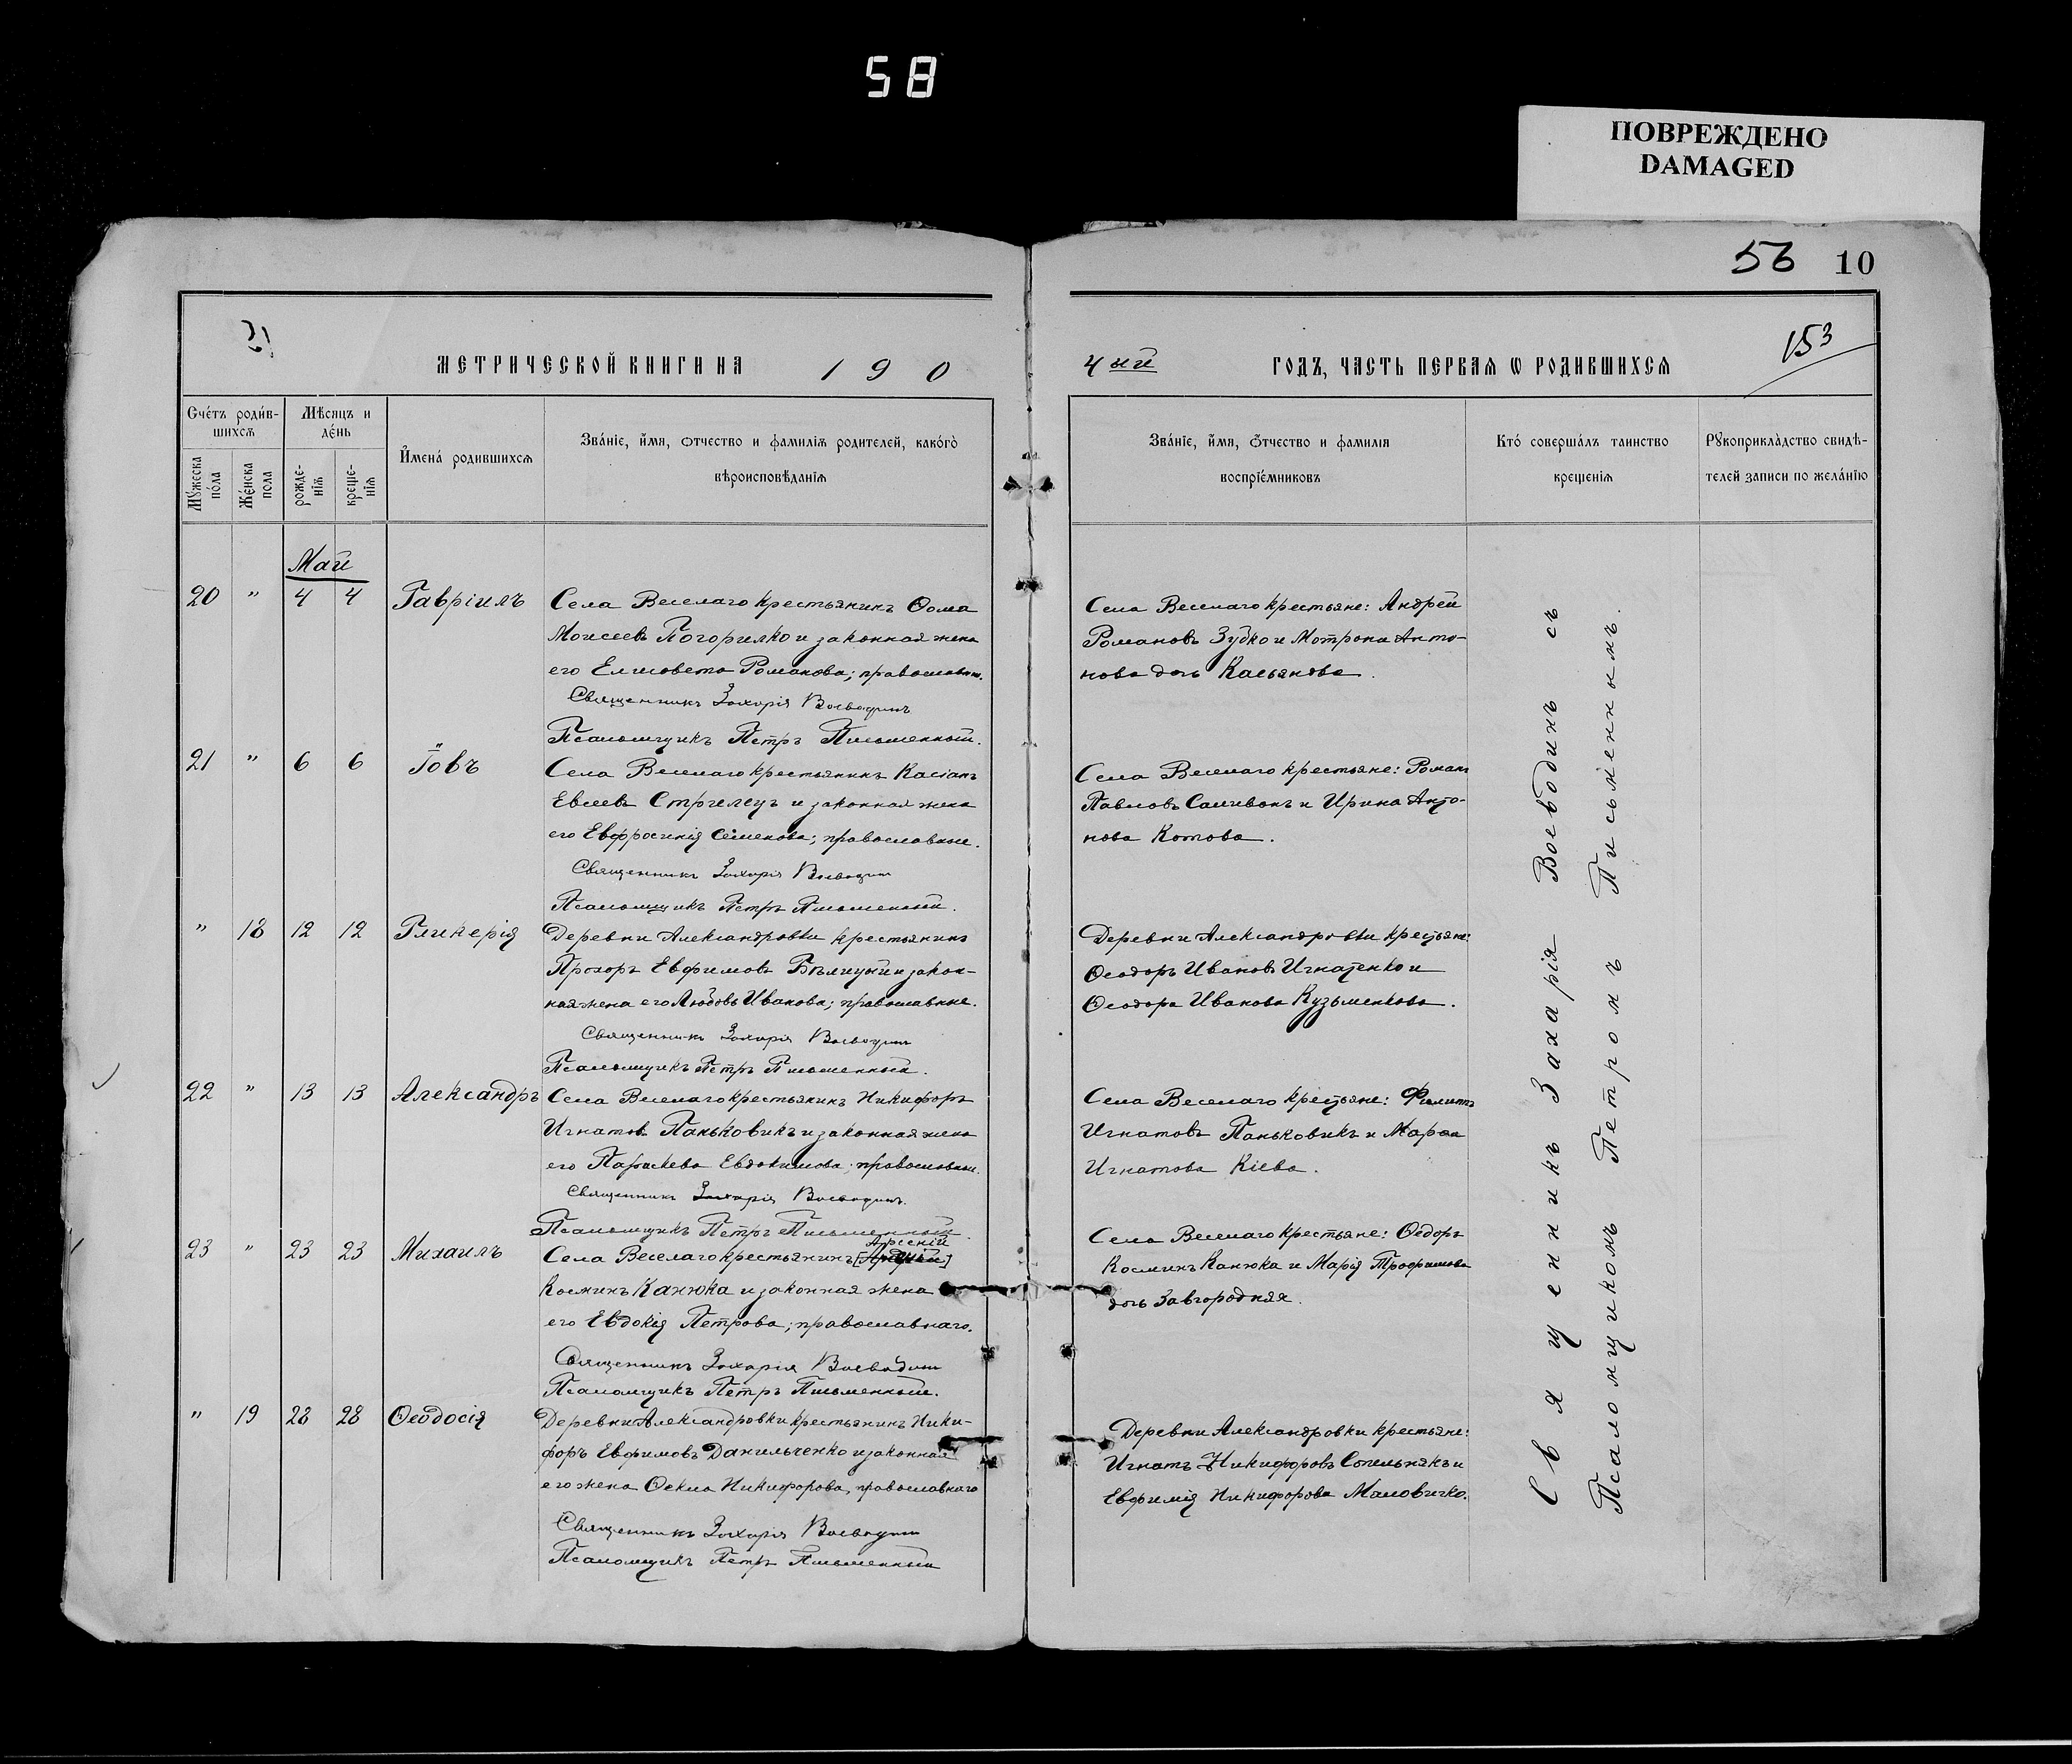 58
ПОВРЕЖДЕНО
DAMAGED
56 10
153
МЕТРИЧЕСКОЙ КНИГИ НА 190
4ый ГОДЪ, ЧАСТЬ ПЕРВАЯ Ѡ РОДИВШИХСЯ
Счетъ родив-
шихся
Мѣсяцъ и
день
Мужеска
пола
Женска
пола
рожде-
нія
креще-
нія
Имена родившихся
Званіе, имя, отчество и фамилія родителей, какого
вѣроисповѣданія
Званіе, имя, отчество и фамилія
воспріемниковъ
Кто совершалъ таинство
крещенія
Рукоприкладство свидѣ-
телей записи по желанію
Май
20 " 4 4 Гавріилъ
Села Веселаго крестьянинъ Ѳома
Моисеевъ Погорилко и законная жена
его Елисавета Романова; православн.
Священникъ Захарія Воеводинъ
Псаломщикъ Петръ Письменный.
Села Веселаго крестьяне: Андрей
Романовъ Зубко и Мотрона Анто-
нова дочь Касьянова.
21 " 6 6 Іовъ
Села Веселаго крестьянинъ Касіанъ
Евсеевъ Стрилецъ и законная жена
его Евфросинія Семенова; православные.
Священникъ Захарія Воеводинъ
Псаломщикъ Петръ Письменный.
Села Веселаго крестьяне: Романъ
Павловъ Саливонъ и Ирина Анто-
нова Котова.
" 18 12 12 Гликерія
Деревни Александровки крестьянинъ
Прохоръ Евфимовъ Бѣлицкий и закон-
ная жена его Любовь Иванова; православные.
Священникъ Захарія Воеводинъ
Псаломщикъ Петръ Письменный.
Деревни Александровки крестьяне:
Ѳеодоръ Ивановъ Игнатенко и
Ѳеодора Иванова Кузьменкова.
22 " 13 13 Александръ
Села Веселаго крестьянинъ Никифоръ
Игнатовъ Паньковикъ и законная жена
его Параскева Евдокимова; православн.
Священникъ Захарія Воеводинъ.
Псаломщикъ Петръ Письменный.
Села Веселаго крестьяне: Филиппъ
Игнатовъ Паньковикъ и Марѳа
Игнатова Кіева.
23 " 23 23 Михаилъ
Арсеній
Села Веселаго крестьянинъ [Андрей]
Косминъ Канюка и законная жена
его Евдокія Петрова; православнаго.
Священникъ Захарія Воеводинъ
Псаломщикъ Петръ Письменный.
Села Веселаго крестьяне: Ѳеодоръ
Косминъ Канюка и Марія Трофимова
дочь Завгородняя.
" 19 28 28 Ѳеодосія
Деревни Александровки крестьянинъ Ники-
форъ Евфимовъ Данильченко и законная
его жена Ѳекла Никифорова, православнаго
Священникъ Захарія Воеводинъ
Псаломщикъ Петръ Письменный
Деревни Александровки крестьяне:
Игнатъ Никифоровъ Сопильнякъ и
Евфимія Никифорова Маловичко.
Священникъ Захарія Воеводинъ съ
Псаломщикомъ Петромъ Письменнымъ.